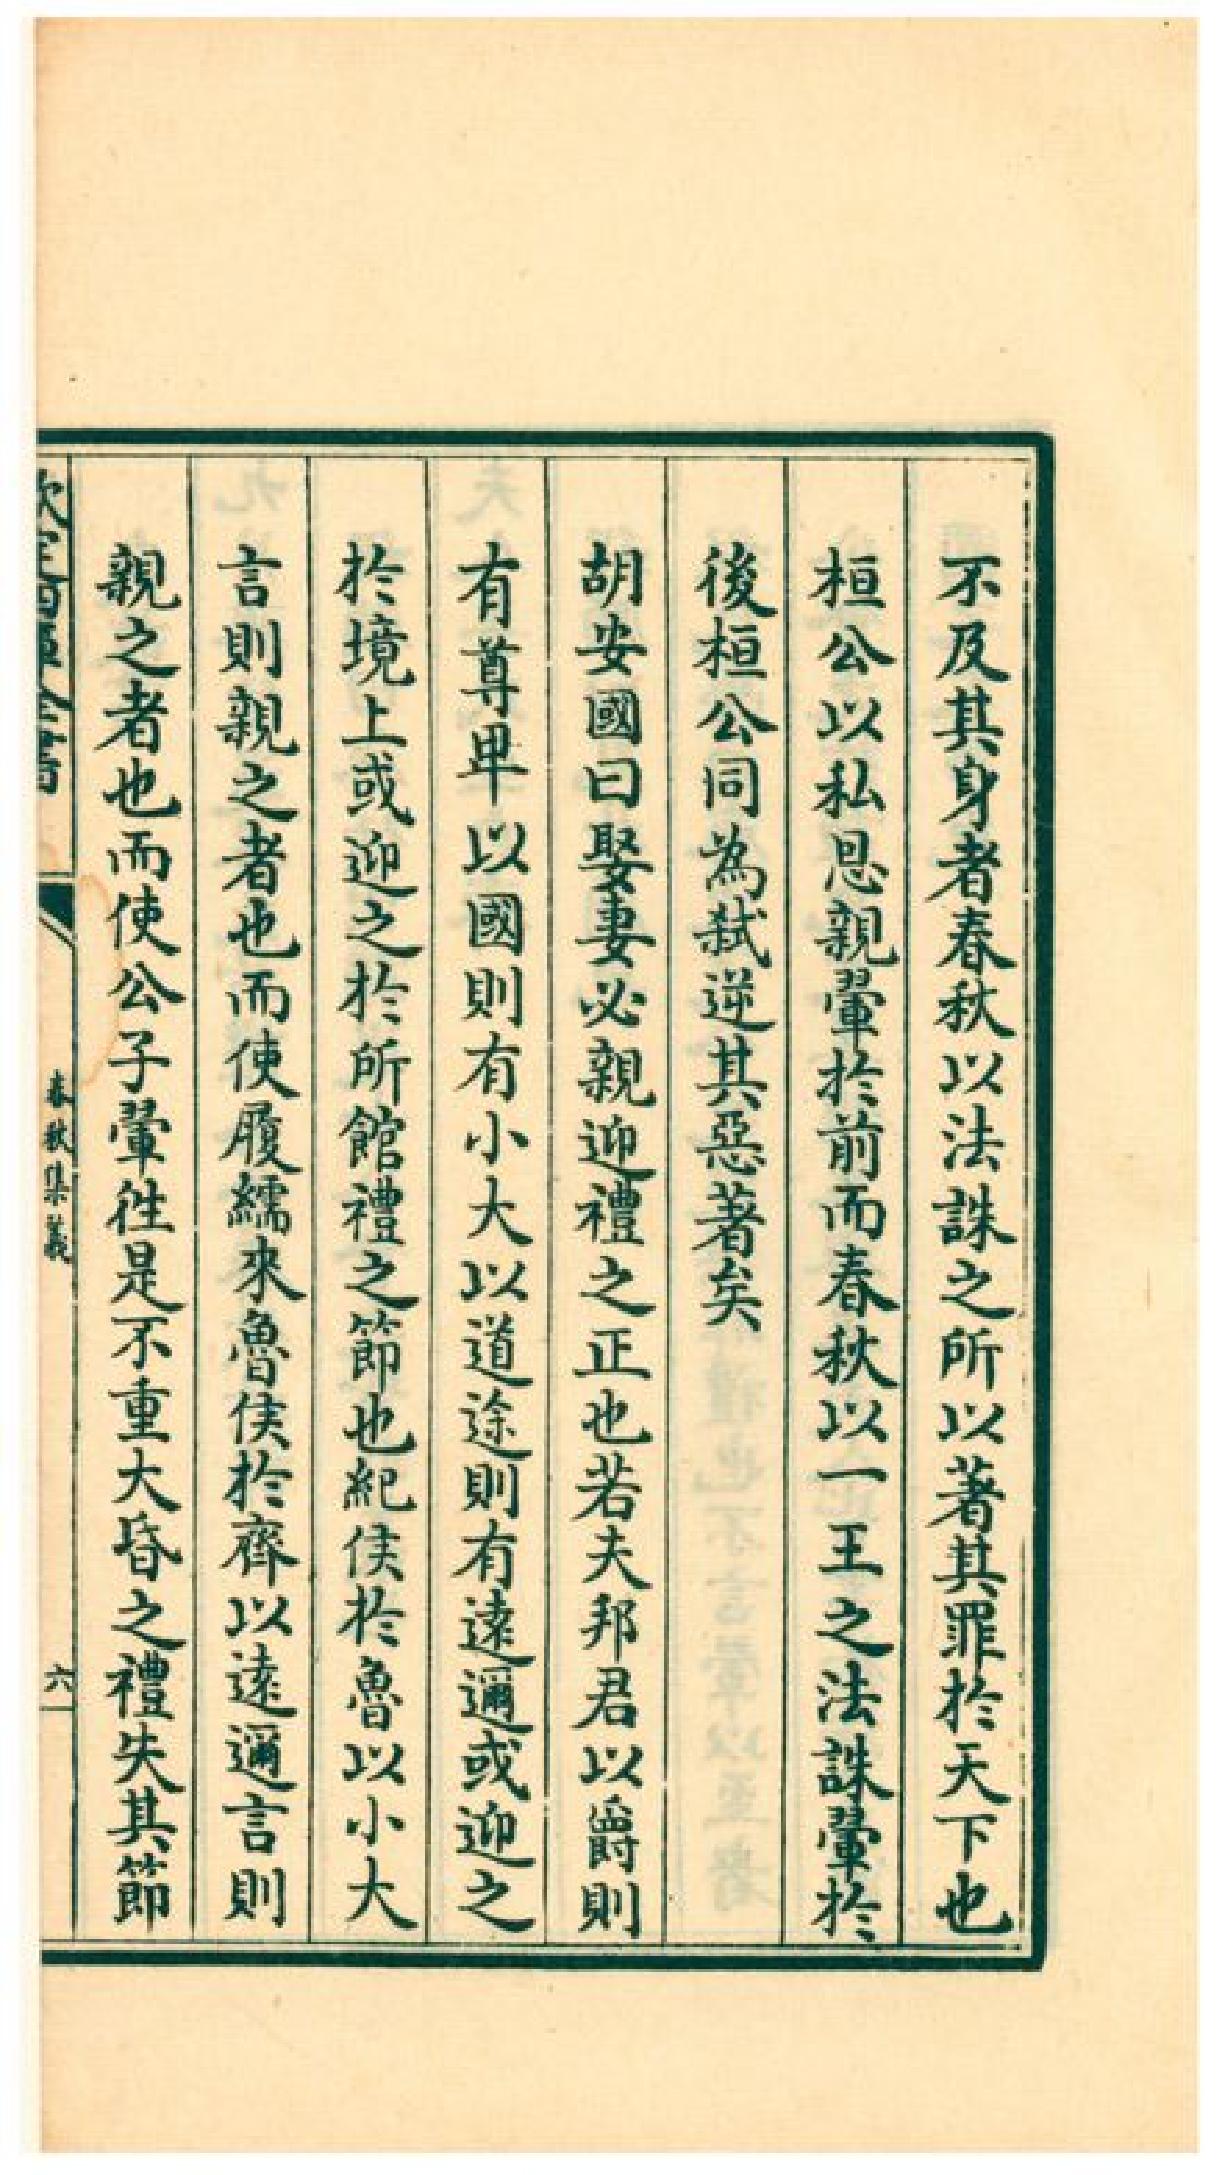 不及其身者春秋以法誅之所以著其罪於天下也
桓公以私恩親翬於前而春秋以一王之法誅翬於
後桓公同為弑逆其惡著矣
胡安國曰娶妻必親迎禮之正也若夫邦君以爵則
有尊卑以國則有小大以道途則有逺邇或迎之
於境上或迎之於所館禮之節也紀侯於魯以小大
言則親之者也而使履繻來魯侯於齊以逺邇言則
親之者也而使公子翬徃是不重大昏之禮失其節
欽定四庫全書
春秋集義
六